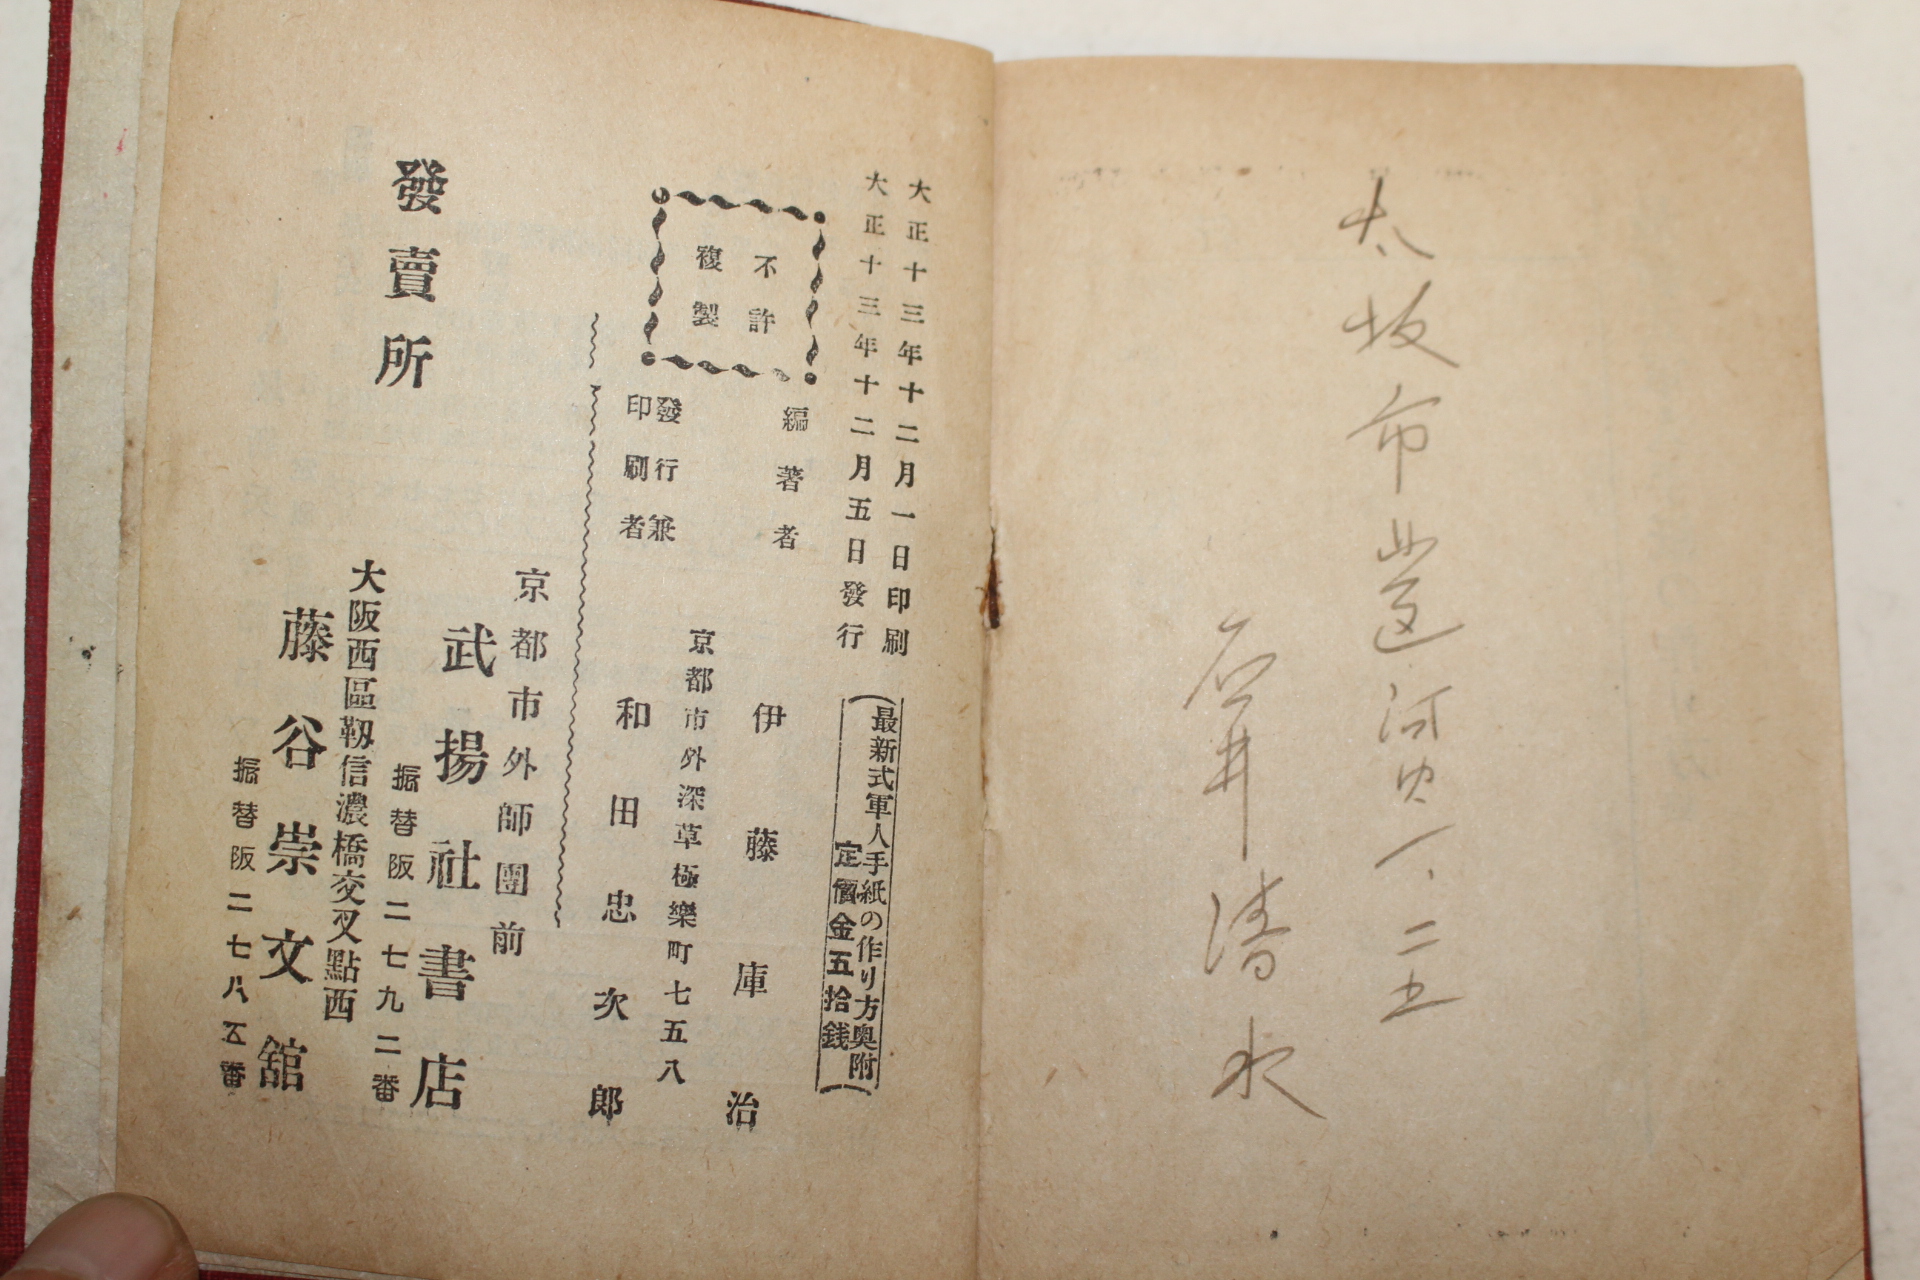 大坂市此区河内一、二五
石井清水
大正十三年十二月一日印刷
大正十三年十二月五日發行
(最新式軍人手紙の作り方奥附)
定價金五拾錢
不許
複製
編著者 伊藤庫治
京都市外深草極樂町七五八
發行兼
印刷者 和田忠次郎
發賣所
京都市外師團前
武揚社書店
振替阪二七九二番
大阪西區靱信濃橋交叉點西
藤谷崇文舘
振替阪二七八五番